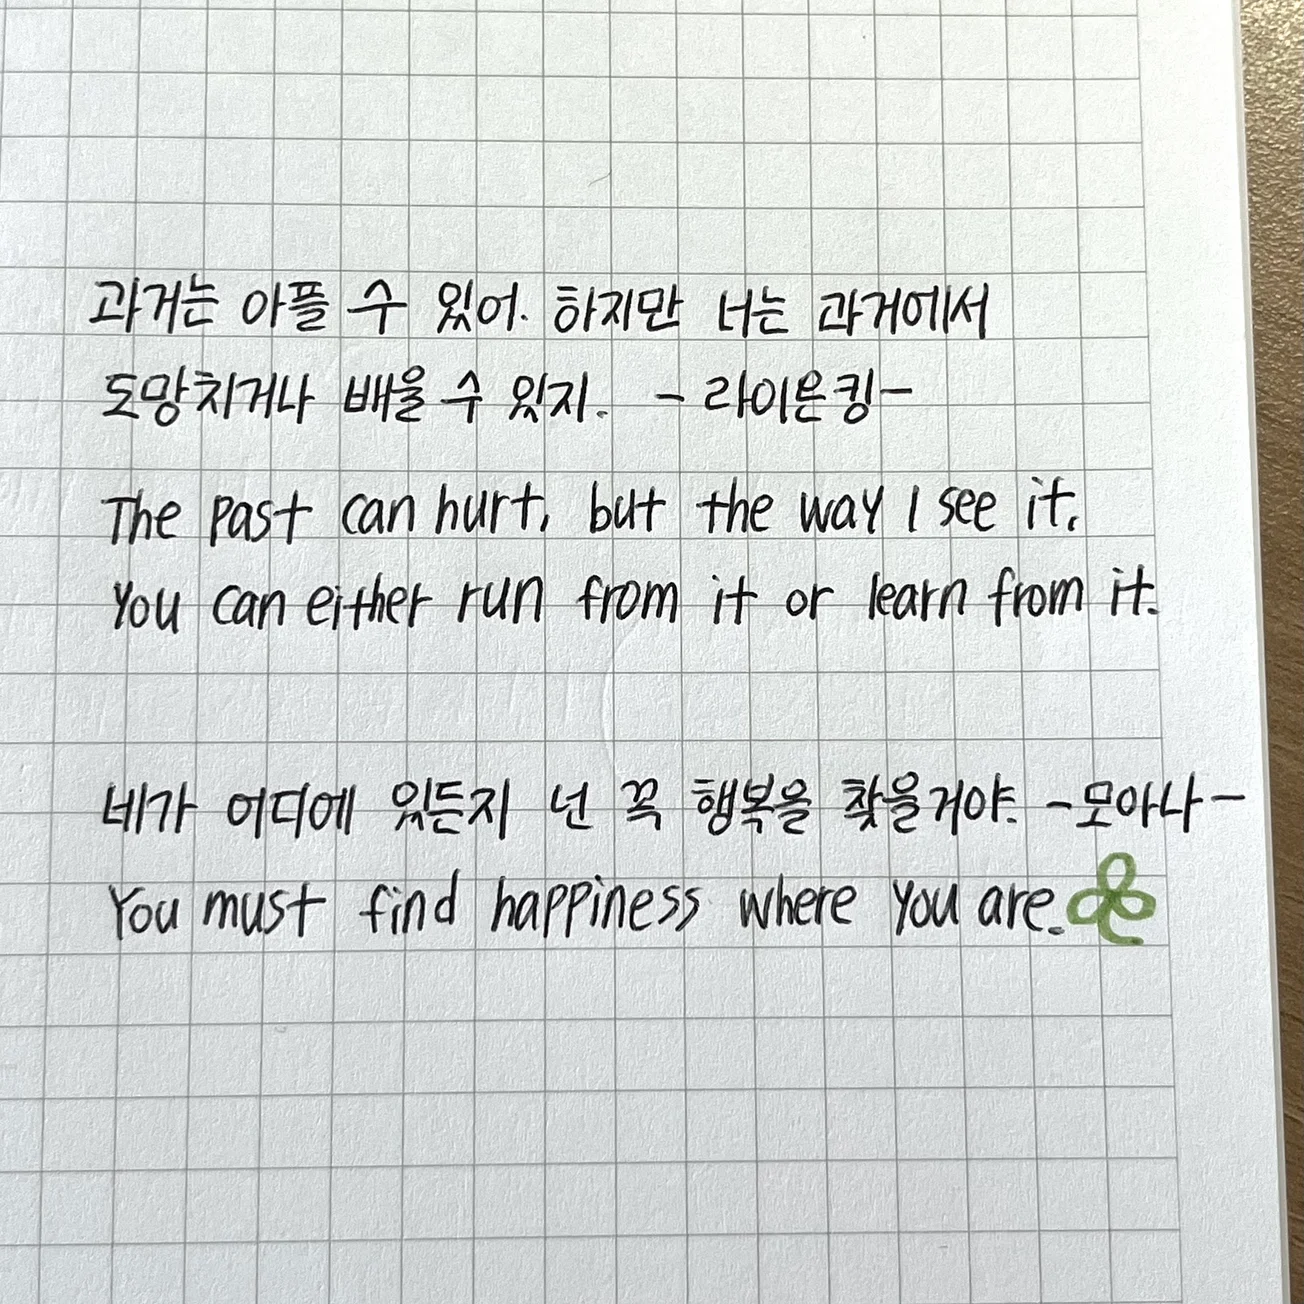 과거는 아플 수 있어. 하지만 너는 과거에서
도망치거나 배울 수 있지. - 라이온킹-
The past can hurt, but the way I see it,
You can either run from it or learn from it.
네가 어디에 있든지 넌 꼭 행복을 찾을거야. -모아나-
You must find happiness where you are.